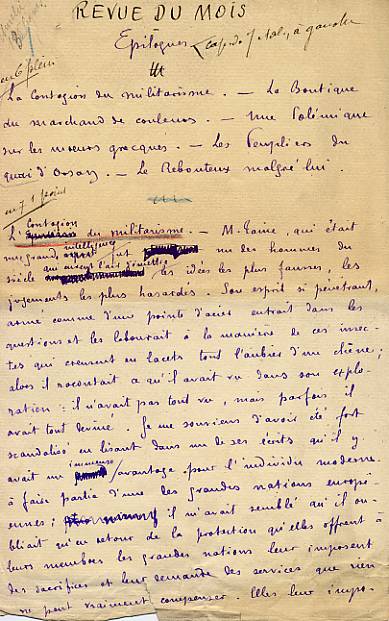 REVUE DU MOIS
Epilogues
III
La Contagion du militarisme. — La Boutique
du marchand de couleurs. — Une Polémique
sur les mœurs grecques. — Les Peupliers du
quai d'Orsay. — Le Rebouteux malgré lui.
en 7 1 point
contagion
L' du militarisme. — M. Taine, qui était
intelligence
une grande fut un des hommes du
siècle qui aient les idées les plus fausses, les
jugements les plus hasardés. Son esprit si pénétrant,
armé comme d'une pointe d'acier entrait dans les
questions et les labourait à la manière de ces insec-
tes qui creusent en lacets tout l'aubier d'un chêne;
alors il racontait ce qu'il avait vu dans son explo-
ration : il n'avait pas tout vu, mais parfois il
avait tout deviné. Je me souviens d'avoir été fort
scandalisé en lisant dans un de ses écrits qu'il y
immense
avait un avantage pour l'individu moderne
à faire partie d'une des grandes nations europé-
ennes; il m'avait semblé qu'il ou-
bliait qu'en retour de la protection qu'elles offrent à
leurs membres les grandes nations leur imposent
des sacrifices et leur demande des services que rien
ne peut vraiment compenser. Elles leur impo-